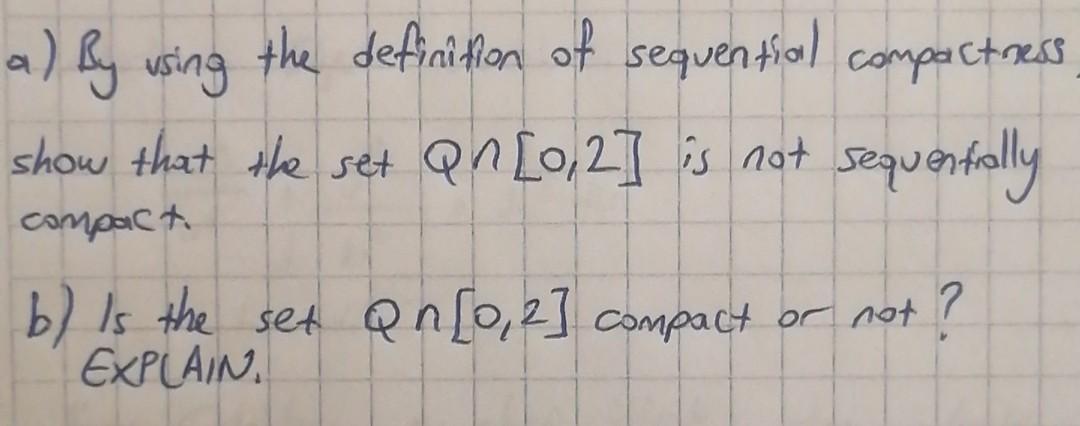 a) By using the definition of sequential compactness,
show that the set Q∩[0,2] is not sequentially
compact.
b) Is the set Q∩[0,2] compact or not?
EXPLAIN.